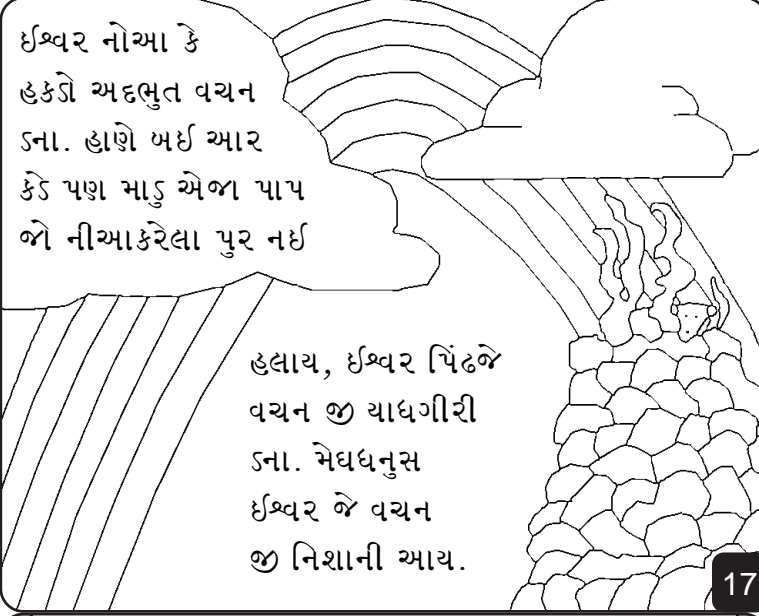 ઈશ્વર નોઆ કે
હકડો અદભુત વચન
ડના. હાણે બઈ આર
કેડે પણ માડુ એજા પાપ
જો નીઆકરેલા પુર નઈ
હલાય, ઈશ્વર પિંઢજે
વચન જી યાધગીરી
ડના. મેઘધનુસ
ઈશ્વર જે વચન
જી નિશાની આય.
17